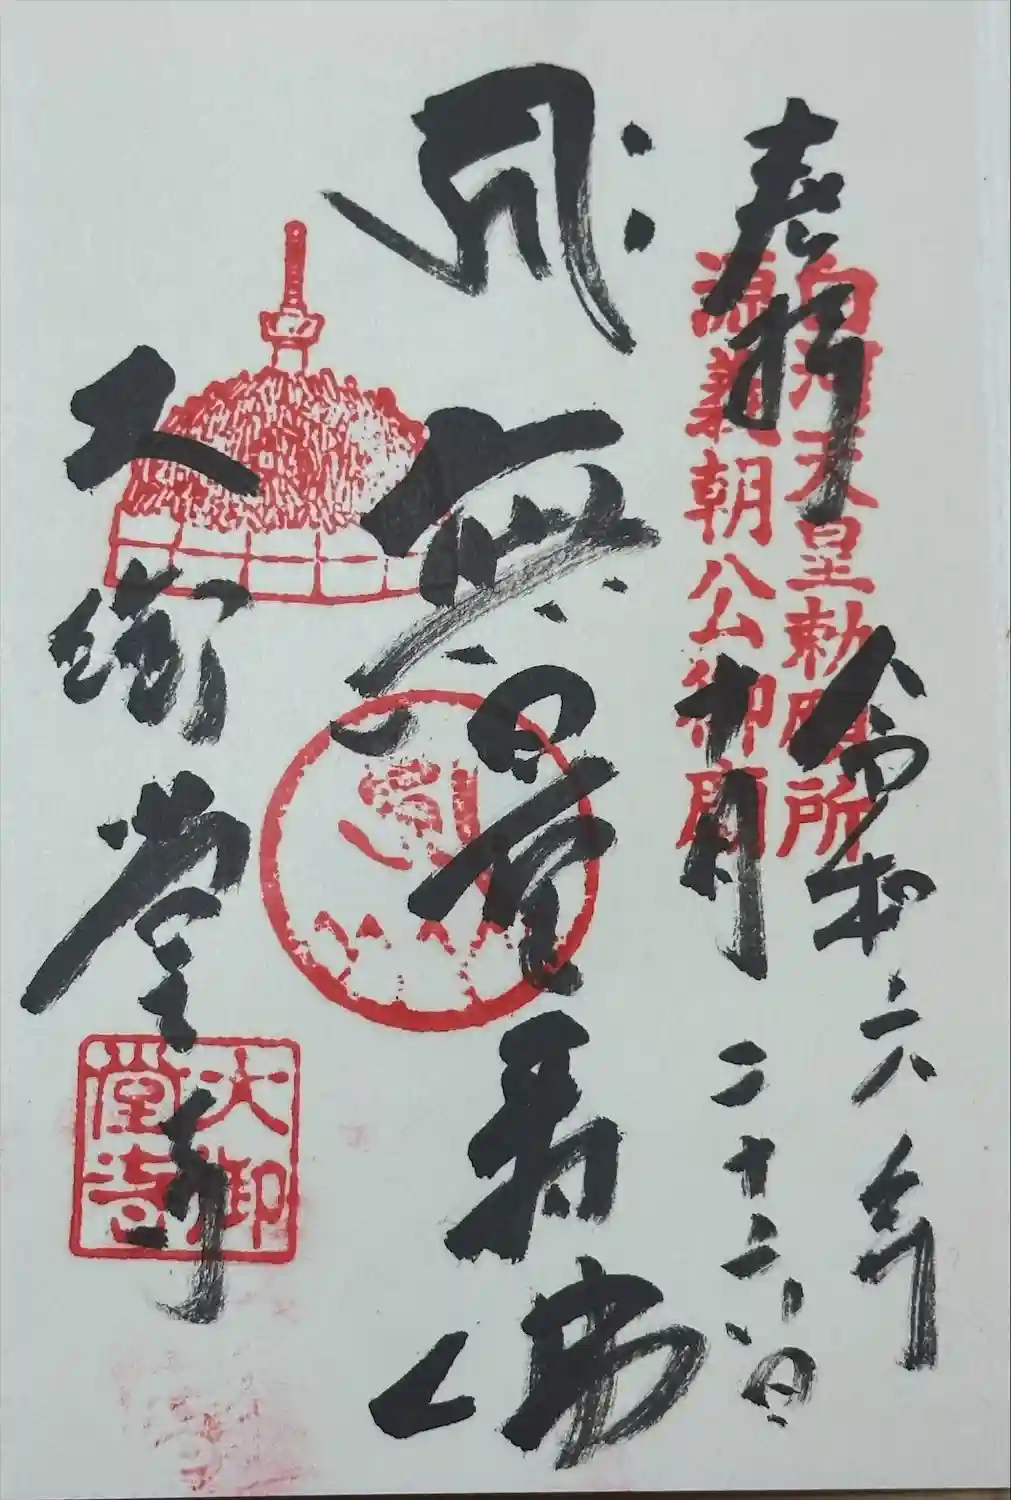 奉拝
白河天皇勅願所
源義朝公御廟
令和六年
十月二十二日
無量寿佛
大御堂寺
大御
堂寺